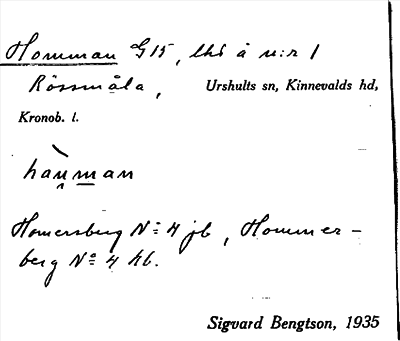 Homman G15, lhs å n:r 1
Rössmåla, Urshults sn, Kinnevalds hd,
Kronob. l.
han̥man
Homersberg No 4 jb, Hommer-
berg No 4 hb.
Sigvard Bengtson, 1935